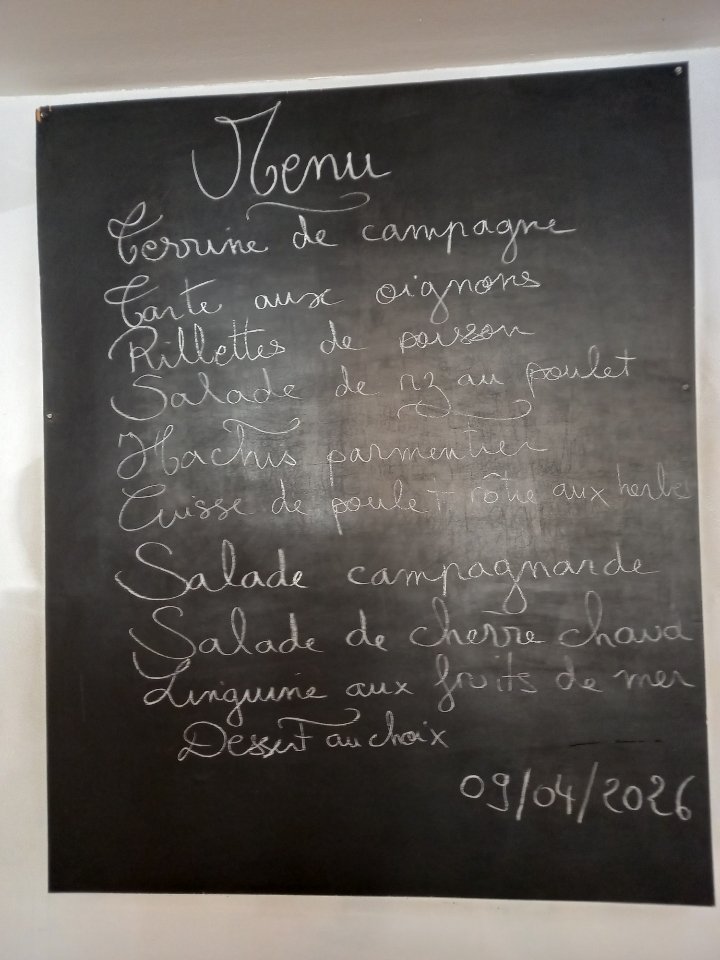 Menu
Terrine de campagne
Tarte aux oignons
Rillettes de poisson
Salade de riz au poulet
Hachis parmentier
Cuisse de poulet rôtie aux herbes
Salade campagnarde
Salade de chèvre chaud
Linguine aux fruits de mer
Dessert au choix
09/04/2026